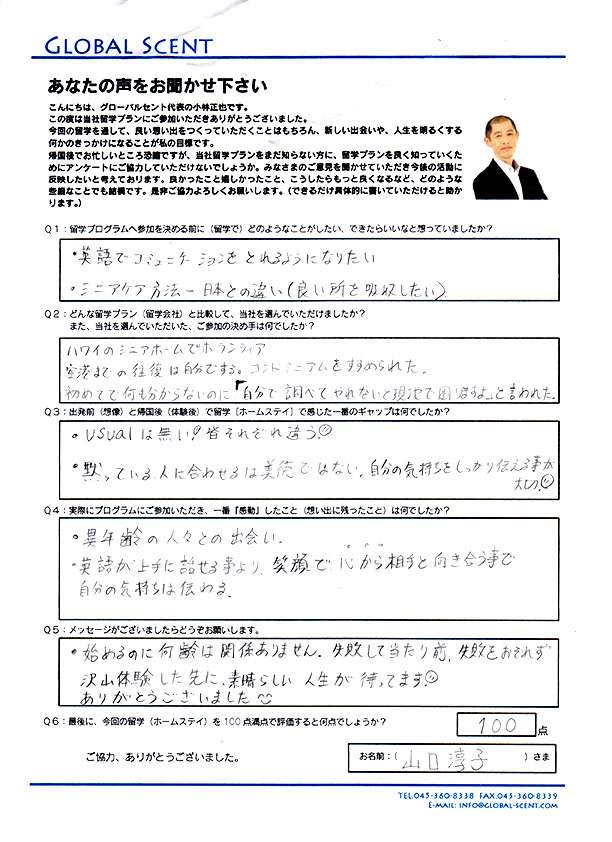 GLOBAL SCENT
あなたの声をお聞かせ下さい
こんにちは、グローバルセント代表の小林正也です。
この度は当社留学プランにご参加いただきありがとうございました。
今回の留学を通して、良い想い出をつくっていただくことはもちろん、新しい出会いや、人生を明るくする
何かのきっかけになることが私の目標です。
帰国後でお忙しいところ恐縮ですが、当社留学プランをまだ知らない方に、留学プランを良く知っていくた
めにアンケートにご協力していただけないでしょうか。みなさまのご意見を聞かせていただき今後の活動に
反映したいと考えております。良かったこと嬉しかったこと、こうしたらもっと良くなるなど、どのような
些細なことでも結構です。是非ご協力よろしくお願いします。（できるだけ具体的に書いていただけると助か
ります。）
Q1：留学プログラムへ参加を決める前に（留学で）どのようなことがしたい、できたらいいなと想っていましたか？
・英語でコミュニケーションをとれるようになりたい
・シニアケア方法－日本との違い(良い所を吸収したい)
Q2：どんな留学プラン（留学会社）と比較して、当社を選んでいただけましたか？
また、当社を選んでいただいた、ご参加の決め手は何でしたか？
ハワイのシニアホームでボランティア
空港までの往復は自分でする。コンドミニアムをすすめられた。
初めてで何も分からないのに「自分で調べてやれないと現地で困りますよ」と言われた。
Q3：出発前（想像）と帰国後（体験後）で留学（ホームステイ）で感じた一番のギャップは何でしたか？
・usualは無い!皆それぞれ違う!
・黙っている人に合わせるは美徳ではない。自分の気持ちをしっかり伝える事が
大切!
Q4：実際にプログラムにご参加いただき、一番「感動」したこと（想い出に残ったこと）は何でしたか？
・異年齢の人々との出会い。
・英語が上手に話せる事より、笑顔で心から相手と向き合う事で
自分の気持ちは伝わる。
Q5：メッセージがございましたらどうぞお願いします。
・始めるのに何齢は関係ありません。失敗して当たり前、失敗をおそれず
沢山体験した先に、素晴らしい人生が待ってます!
ありがとうございました
Q6：最後に、今回の留学（ホームステイ）を100点満点で評価すると何点でしょうか？ 100点
ご協力、ありがとうございました。 お名前：（山口淳子）さま
TEL.045-360-8338 FAX.045-360-8339
E-MAIL: INFO@GLOBAL-SCENT.COM